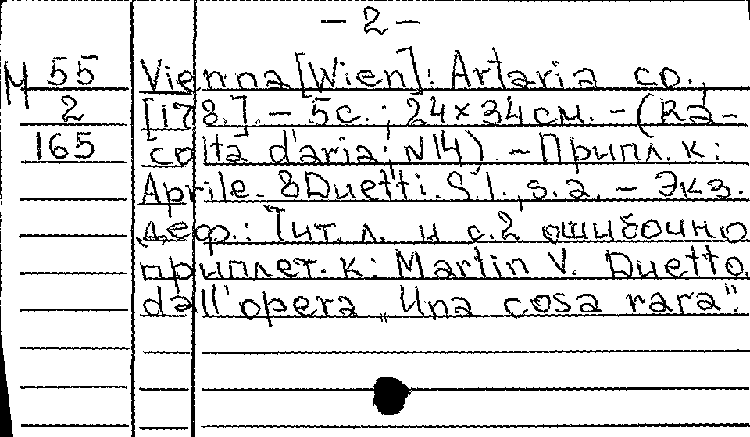 - 2 -
М 55 Vienna [Wien]: Artaria co.,
2 [178.]. - 5с.; 24×34см. - (Ra-
165 colta d'aria; N14) - Припл. к:
Aprile. 8Duetti. S.l., s.a. - Экз.
деф.: Тит. л. и с.2 ошибочно
приплет. к: Martin V. Duetto
dall'opera „Una cosa rara".